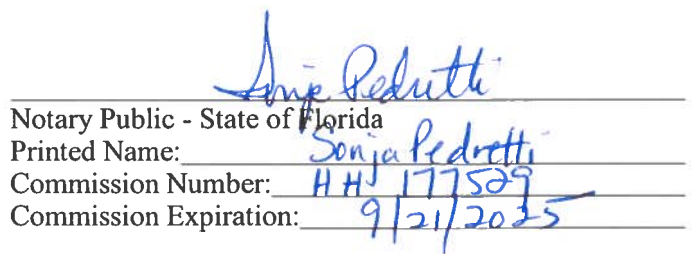 Sonja Pedretti
Notary Public - State of Florida
Printed Name: Sonja Pedretti
Commission Number: HH 177529
Commission Expiration: 9/21/2025